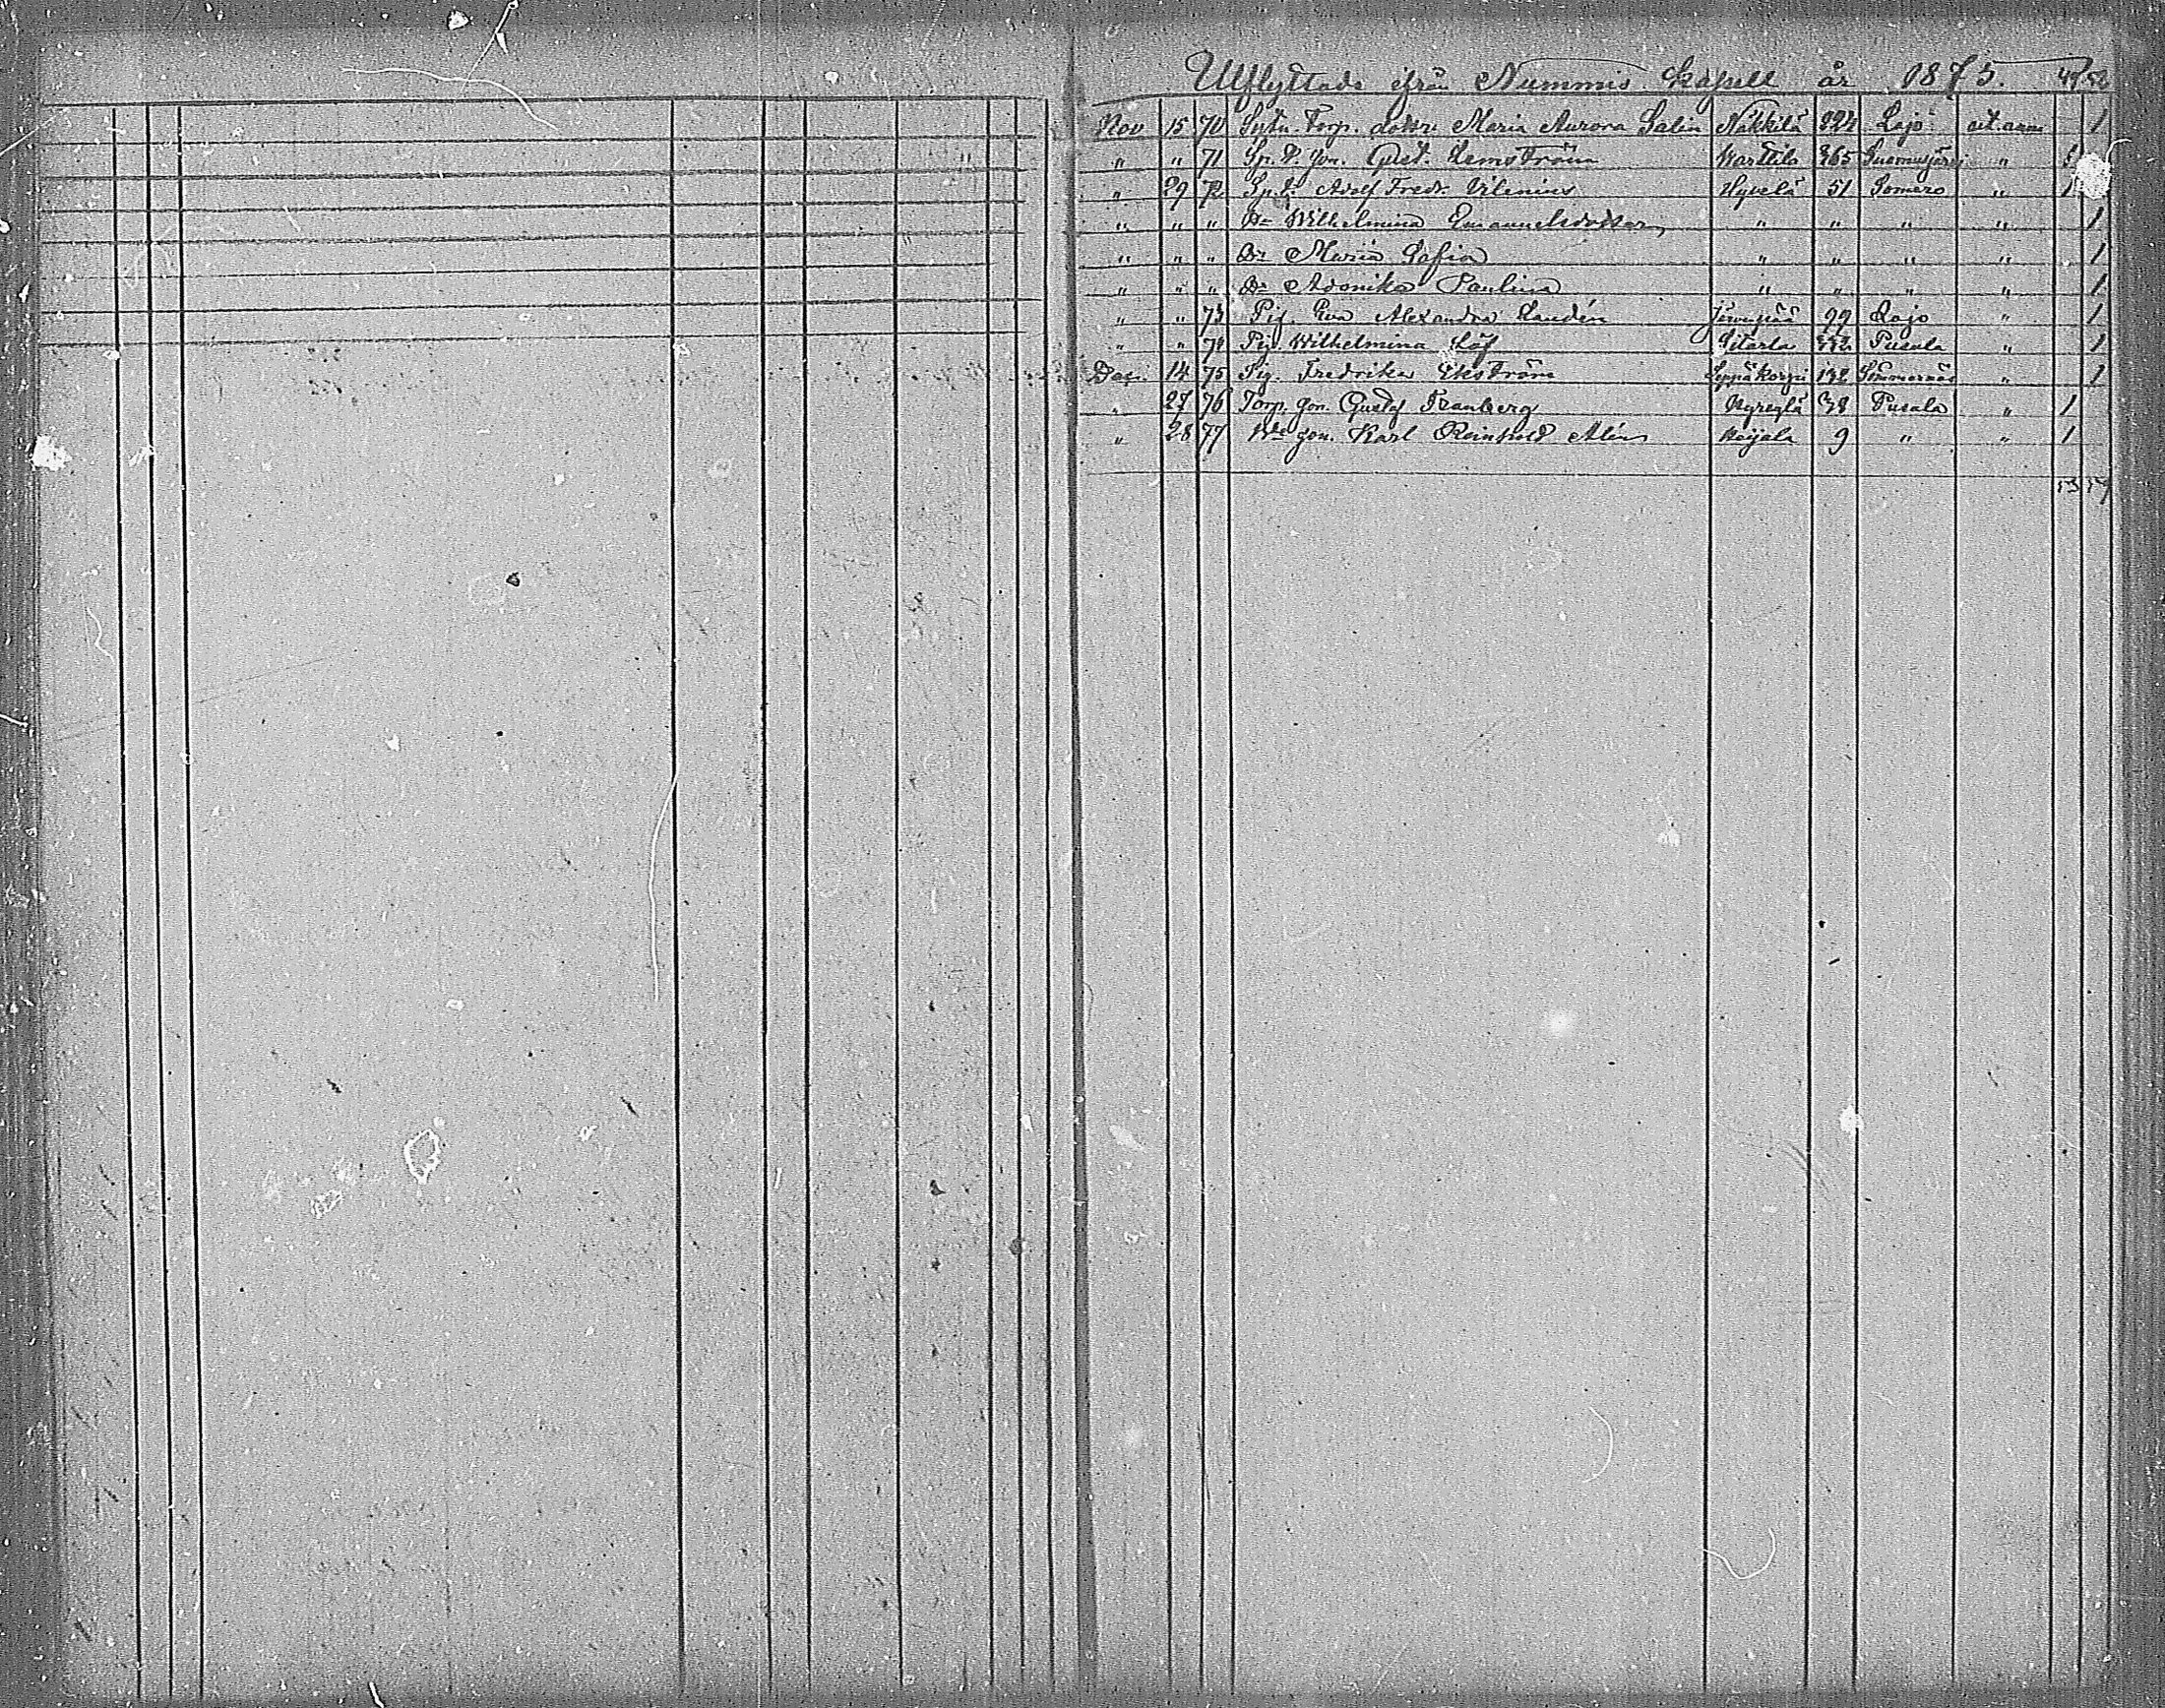 Utflyttade ifrån Nummis kapell år 1875. 49 52
Nov 15 70 Sytn. Torp. dottr. Maria Aurora Salin Nakkila 324 Lojo ut. anm 1
" " 71 Gust. Hemström Warttila 365 Suomusjärvi "
" 29 72 Adolf Fredr. Vilenius Hyvelä 51 Somero " 1
" " " Do Wilhelmina Emanuelsdotter " " " " 1
" " " Do Maria Sofia " " " " 1
" " " Do Adonika Paulina " " " " 1
" " 73 Pig. Eva Alexandra Landén Järvenpää 99 Lojo " 1
" " 74 Pig. Wilhelmina Löf Sitarla 332 Pusula " 1
Dec. 14 75 Pig. Fredrika Ekström Leppäkorpi 132 Sommernäs " 1
" 27 76 Torp. son. Gustaf Franberg 38 Pusula " 1
" 28 77 son. Karl Reinhold Alén 9 " " 1
53 59